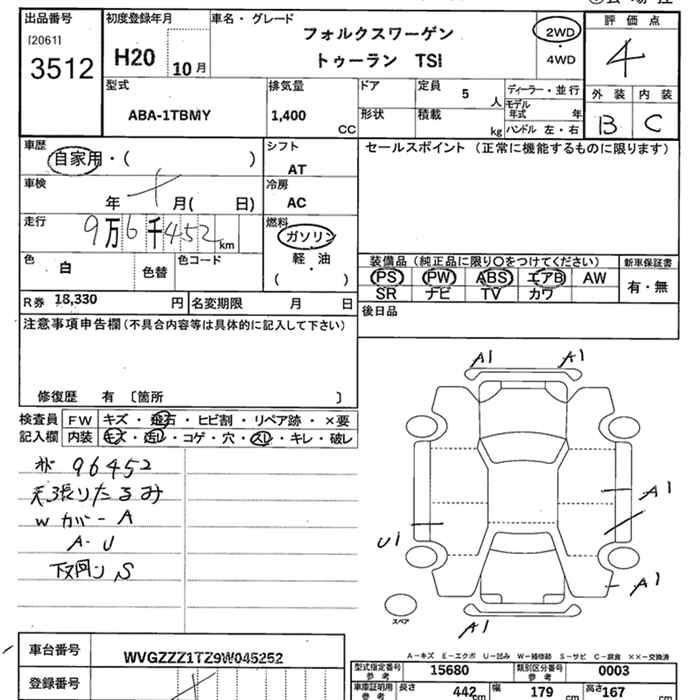 出品番号
[2061]
3512
初度登録年月
H20
10月
車名・グレード
フォルクスワーゲン
トゥーラン TSI
2WD
・
4WD
評価点
4
外装 内装
B C
型式
ABA-1TBMY
排気量
1,400
CC
ドア
形状
定員
5
人
積載
kg
ディーラー・並行
モデル年式 年
ハンドル 左・右
車歴
自家用・( )
シフト
AT
セールスポイント (正常に機能するものに限ります)
車検
年 月( 日)
冷房
AC
走行
9万6千452km
燃料
ガソリン
・
軽油
( )
色
白
色替
色コード
装備品(純正品に限り〇をつけてください)
新車保証書
PS PW ABS エアB AW
SR ナビ TV カワ
有・無
R券 18,330 円
名変期限 月 日
後日品
注意事項申告欄(不具合内容等は具体的に記入して下さい)
修復歴 有 〔箇所 〕
検査員記入欄
FW キズ・飛石・ヒビ割・リペア跡・×要
内装 キズ・汚レ・コゲ・穴・スレ・キレ・破レ
96452
天張りたるみ
Wカバー A
A-U
下廻り S
A1
A1
A1
U1
A1
A1
スペア
A-キズ E-エクボ U-凹み W-補修跡 S-サビ C-腐食 ××-交換済
車台番号
WVGZZZ1TZ9W045252
登録番号
型式指定番号 参考
15680
類別区分番号 参考
0003
車庫証明用 参考
長さ 442cm
幅 179cm
高さ 167cm